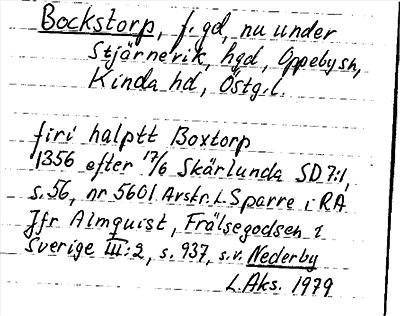 Bockstorp, f. gd, nu under
Stjärnevik, hgd, Oppeby sn,
Kinda hd, Östg.l.
firi halptt Boxtorp
1356 efter 17/6 Skärlunda SD 7:1,
s. 56, nr 5601 Avstr. L Sparre i RA
Jfr Almquist, Frälsegodsen i
Sverige III:2, s. 937, s.v. Nederby
L. Aks. 1979